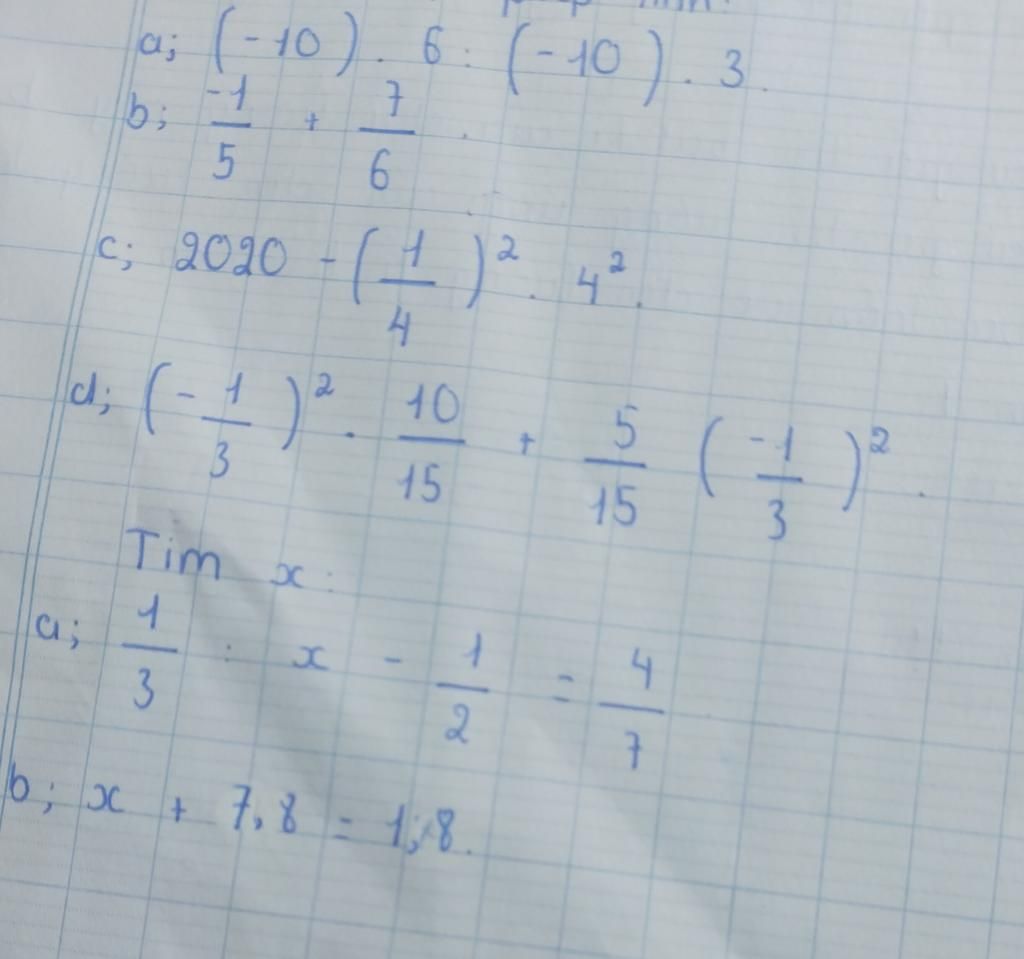 a; (-10) . 6 : (-10) . 3.
b; -1/5 + 7/6 .
c; 2020 - (1/4)² . 4².
d; (-1/3)² . 10/15 + 5/15 (-1/3)² .
Tim x:
a; 1/3 : x - 1/2 = 4/7
b; x + 7,8 = 1,8.